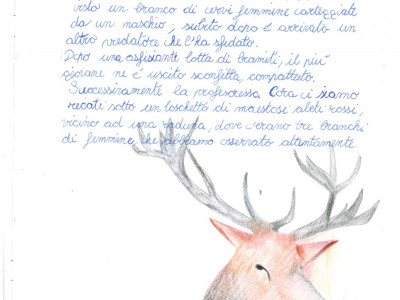 visto un branco di cervi femmine carteggiate
da un maschio; subito dopo è arrivato un
altro predatore che l'ha sfidato.
Dopo una asfisiante lotta di bramiti, il più
giovane ne è uscito sconfitto,
Successivamente la professoressa Cora ci siamo
recati sotto un boschetto di maestosi abeti rossi,
vicino ad una radura, dove c'erano tre branchi
di femmine che abbiamo osservato attentamente.